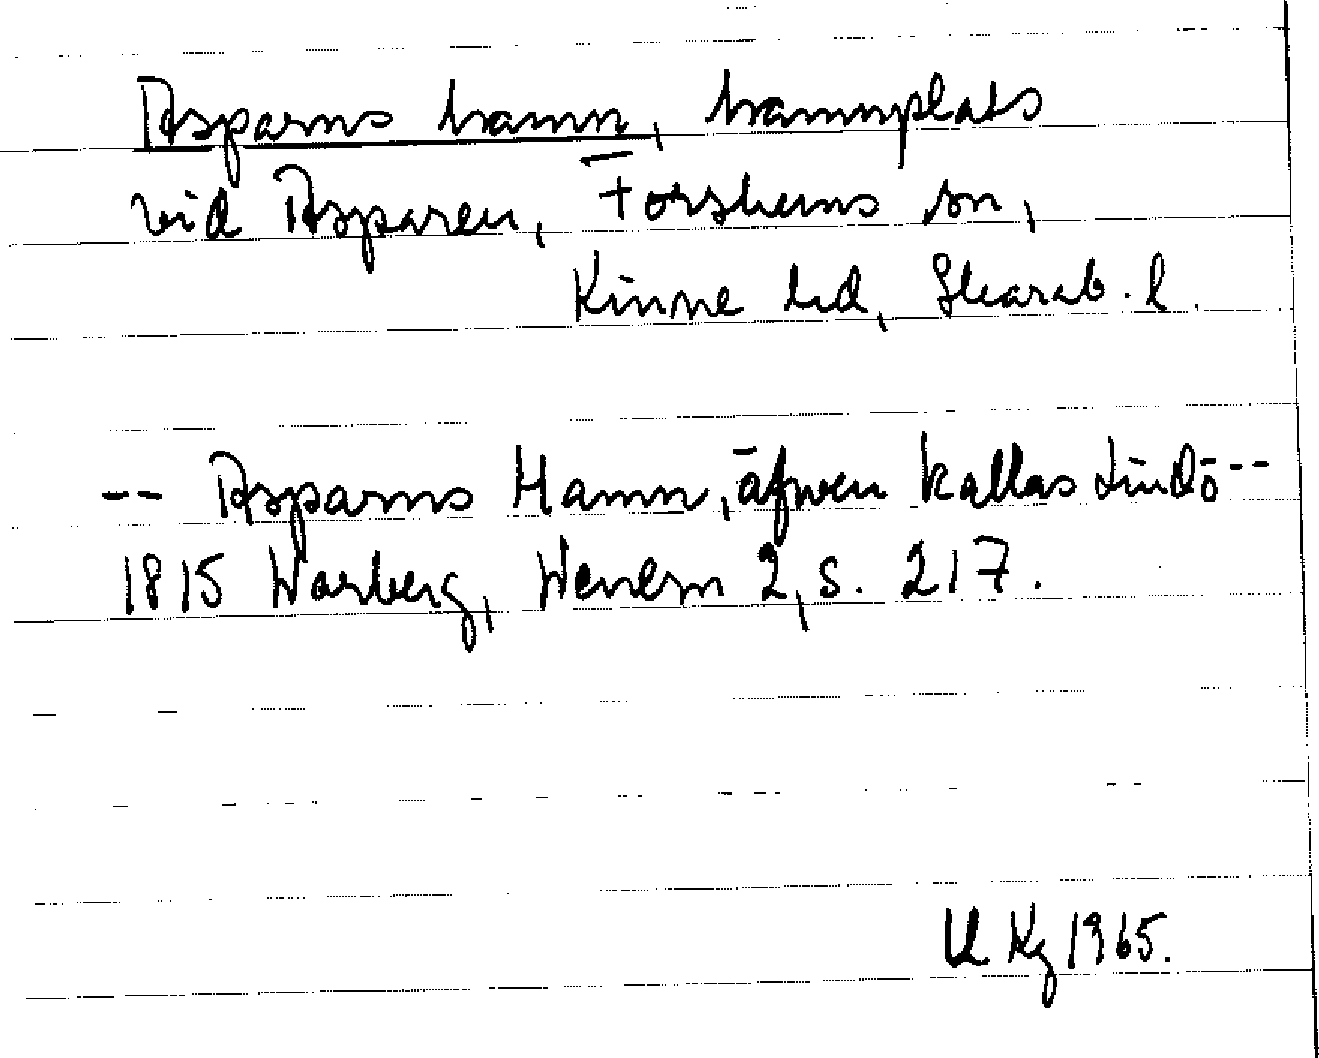 Asparns hamn, hamnplats
vid Asparen, Forshems sn,
Kinne hd, Skarab. l.
-- Asparns Hamn, äfwen kallas Lindö --
1815 Warberg, Wenern 2, s. 217.
U Kg 1965.